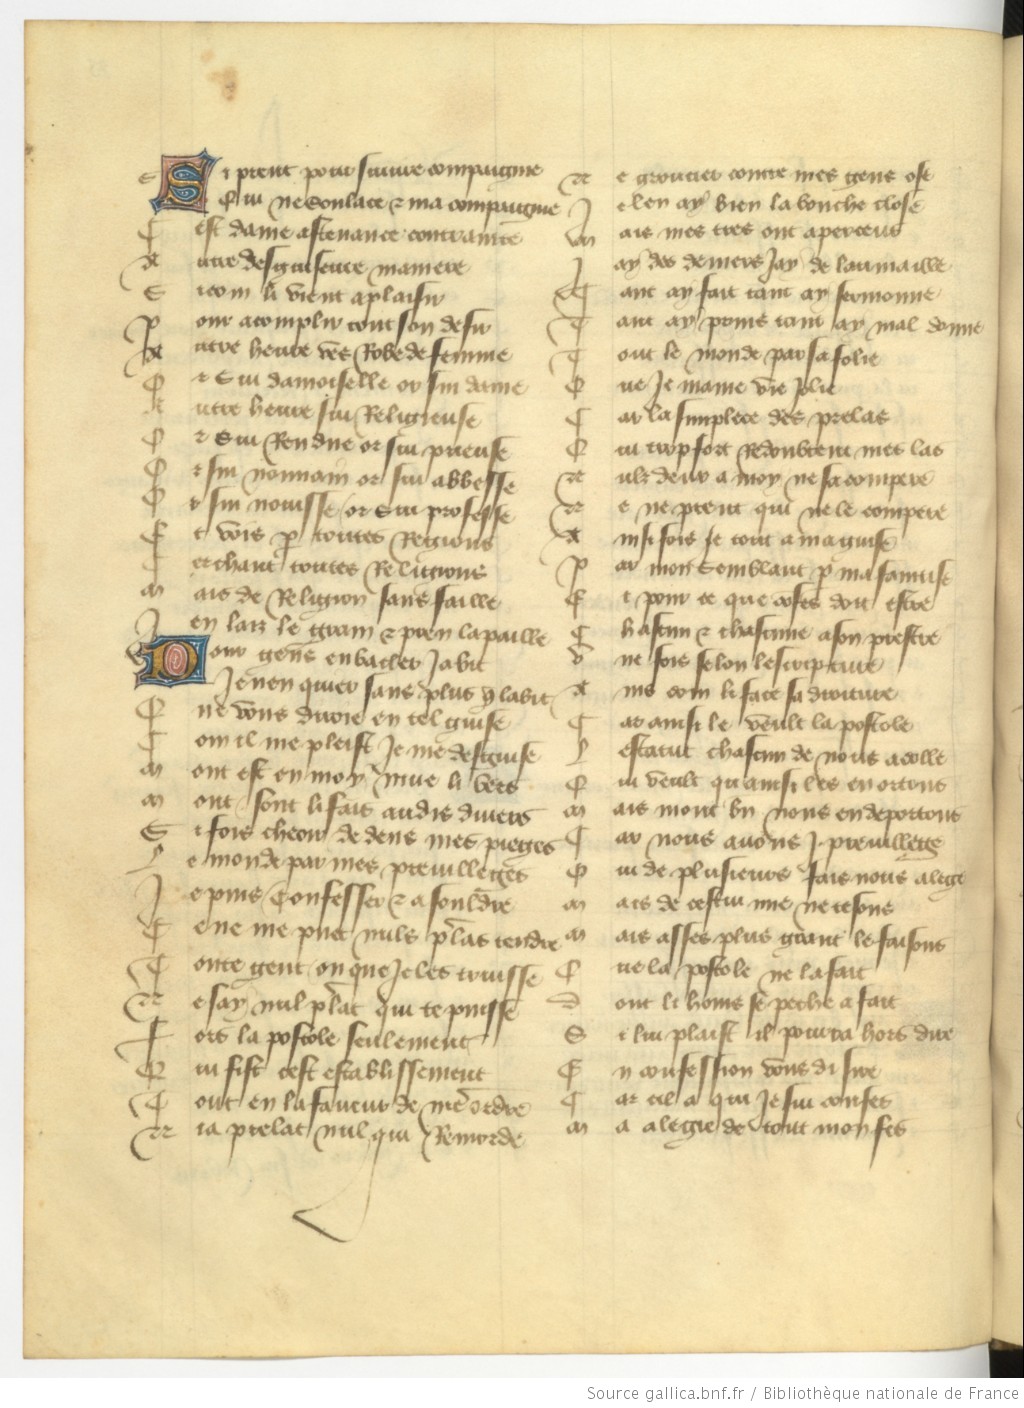 Si prent pour suivre compaignie
Qui me soulace & ma compaigne
C est dame astenance contrainte
A utre desguiseure maniere
S i com li vient a plaisir
P our acomplir tout son desir
A utre heure vés Robe de femme
O r sui damoiselle or sui dame
A utre heure sui Religieuse
O r sui Rendue or sui prieuse
O r sui nonnain or sui abbesse
O r sui novisse or sui professe
E t vois par toutes Regions
C erchant toutes Religions
M ais de Religion sans faille
J en lais le grain & pren la paille
Pour gens enbacler J abit
Je nen quier sans plus que labit
Q ue vous diroie en tel guise
C om il me plaist Je me desguise
M out est en moy mué li vers
M out sont li fais aux dis divers
S i fois cheoir dedens mes pieges
L e monde par mes previlleges
J e puis Confesser & asouldre
C e ne me puet nuls prelas tendre
T oute gent ou que Je les truisse
N e say nul prelat qui ce puisse
F ors la postole seulement
Q ui fist cest establissement
T out en la faveur de nostre ordre
N i a prelat nul qui Remorde
N e groucier contre mes gens ose
J e leur ay bien la bouche close
M ais mes tres ont aperceus
J ay des deniers Jay de laumaille
T ant ay fait tant ay sermonné
T ant ay prins tant ay mal donné
T out le monde par sa folie
Q ue Je maine vie Jolie
C ar la simplece des prelas
Q ui trop fort Redoubtent mes las
N ulz deulx a moy ne se compere
N e ne prent qui ne le compere
A insi fois Je tout a ma guise
P ar mon semblant par ma faintise
E t pour ce que confes doit estre
C hascun & chascune a son prestre
U ne fois selon lescripture
A ins com li face sa droiture
C ar ainsi le veult la postole
L estatut chascun de nous acolle
Q ui veult quainsi les enortons
M ais mout bien nous en deportons
C ar nous avons J previllege
Q ui de plusieurs fais nous alege
M ais de cestui mie ne tesons
M ais asses plus grant le faisons
Q ue la postole ne la fait
D ont li homs se peche a fait
S i lui plaist il pourra lors dire
E n confession vous di sire
C ar cil a qui Je sui confes
M a alegié de tout mon fes
Source gallica.bnf.fr / Bibliothèque nationale de France